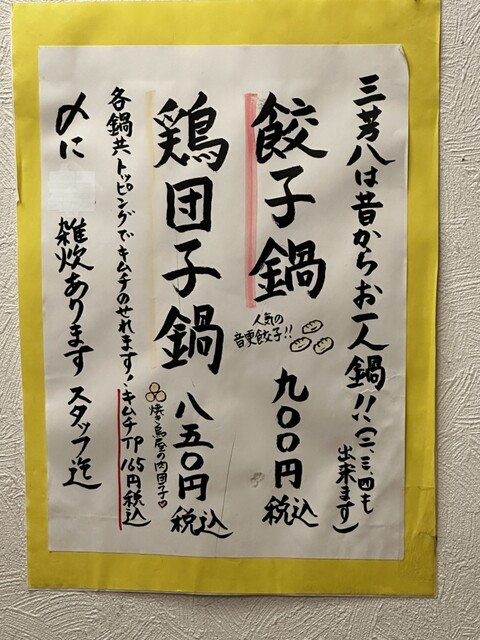 三芳八は昔からお一人鍋!!(二、三、四も
出来ます)
餃子鍋
人気の
音更餃子!!
九〇〇円
税込
鶏団子鍋
焼き鳥屋の肉団子♡
八五〇円
税込
各鍋共トッピングでキムチのせれます!キムチTP 165円税込
〆に
雑炊あります スタッフ迄